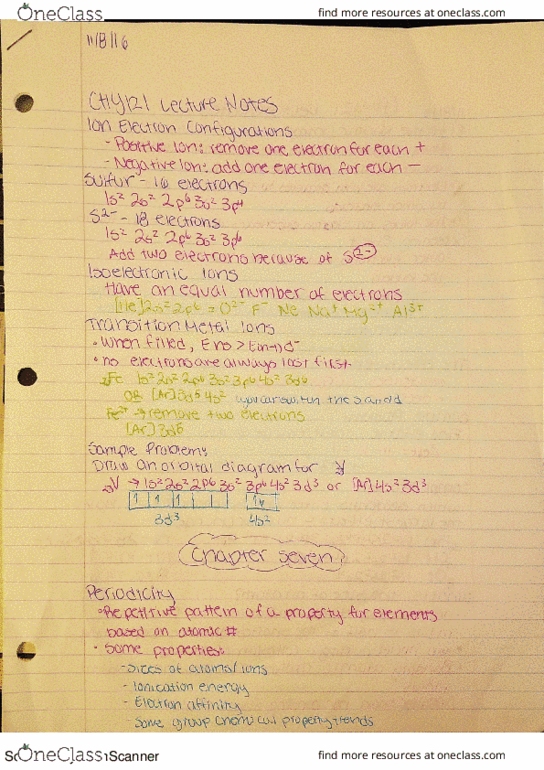 OneClass
find more resources at oneclass.com
11/8/16
CHY121 Lecture Notes
Ion Electron Configurations
- Positive Ion: remove one electron for each +
- Negative Ion: add one electron for each -
Sulfur - 16 electrons
1s² 2s² 2p⁶ 3s² 3p⁴
S²⁻ - 18 electrons
1s² 2s² 2p⁶ 3s² 3p⁶
Add two electrons because of S²⁻
Isoelectronic Ions
Have an equal number of electrons
[He]2s²2p⁶ = O²⁻ F⁻ Ne Na⁺ Mg²⁺ Al³⁺
Transition Metal Ions
• When filled, Ens > E(n-1)d
• ns electrons are always lost first
Fe 1s² 2s² 2p⁶ 3s² 3p⁶ 4s² 3d⁶
OR [Ar]3d⁶ 4s² you can switch the s and d
Fe²⁺ → remove two electrons
[Ar]3d⁶
Sample Problem:
Draw an orbital diagram for V
V → 1s² 2s² 2p⁶ 3s² 3p⁶ 4s² 3d³ or [Ar]4s² 3d³
3d³ 4s²
Chapter Seven
Periodicity
• Repetitive pattern of a property for elements
based on atomic #
• Some properties:
- Sizes of atoms/ions
- Ionization energy
- Electron affinity
- Some group chemical property trends
OneClass
Scanner
find more resources at oneclass.com